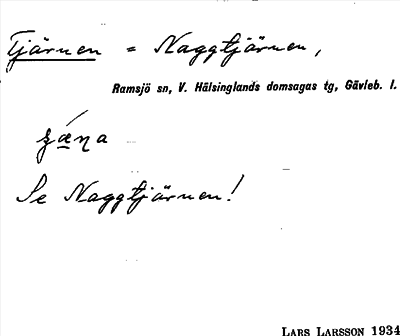 Tjärnen = Naggtjärnen,
Ramsjö sn, V. Hälsinglands domsagas tg, Gävleb. l.
Se Naggtjärnen!
LARS LARSSON 1934